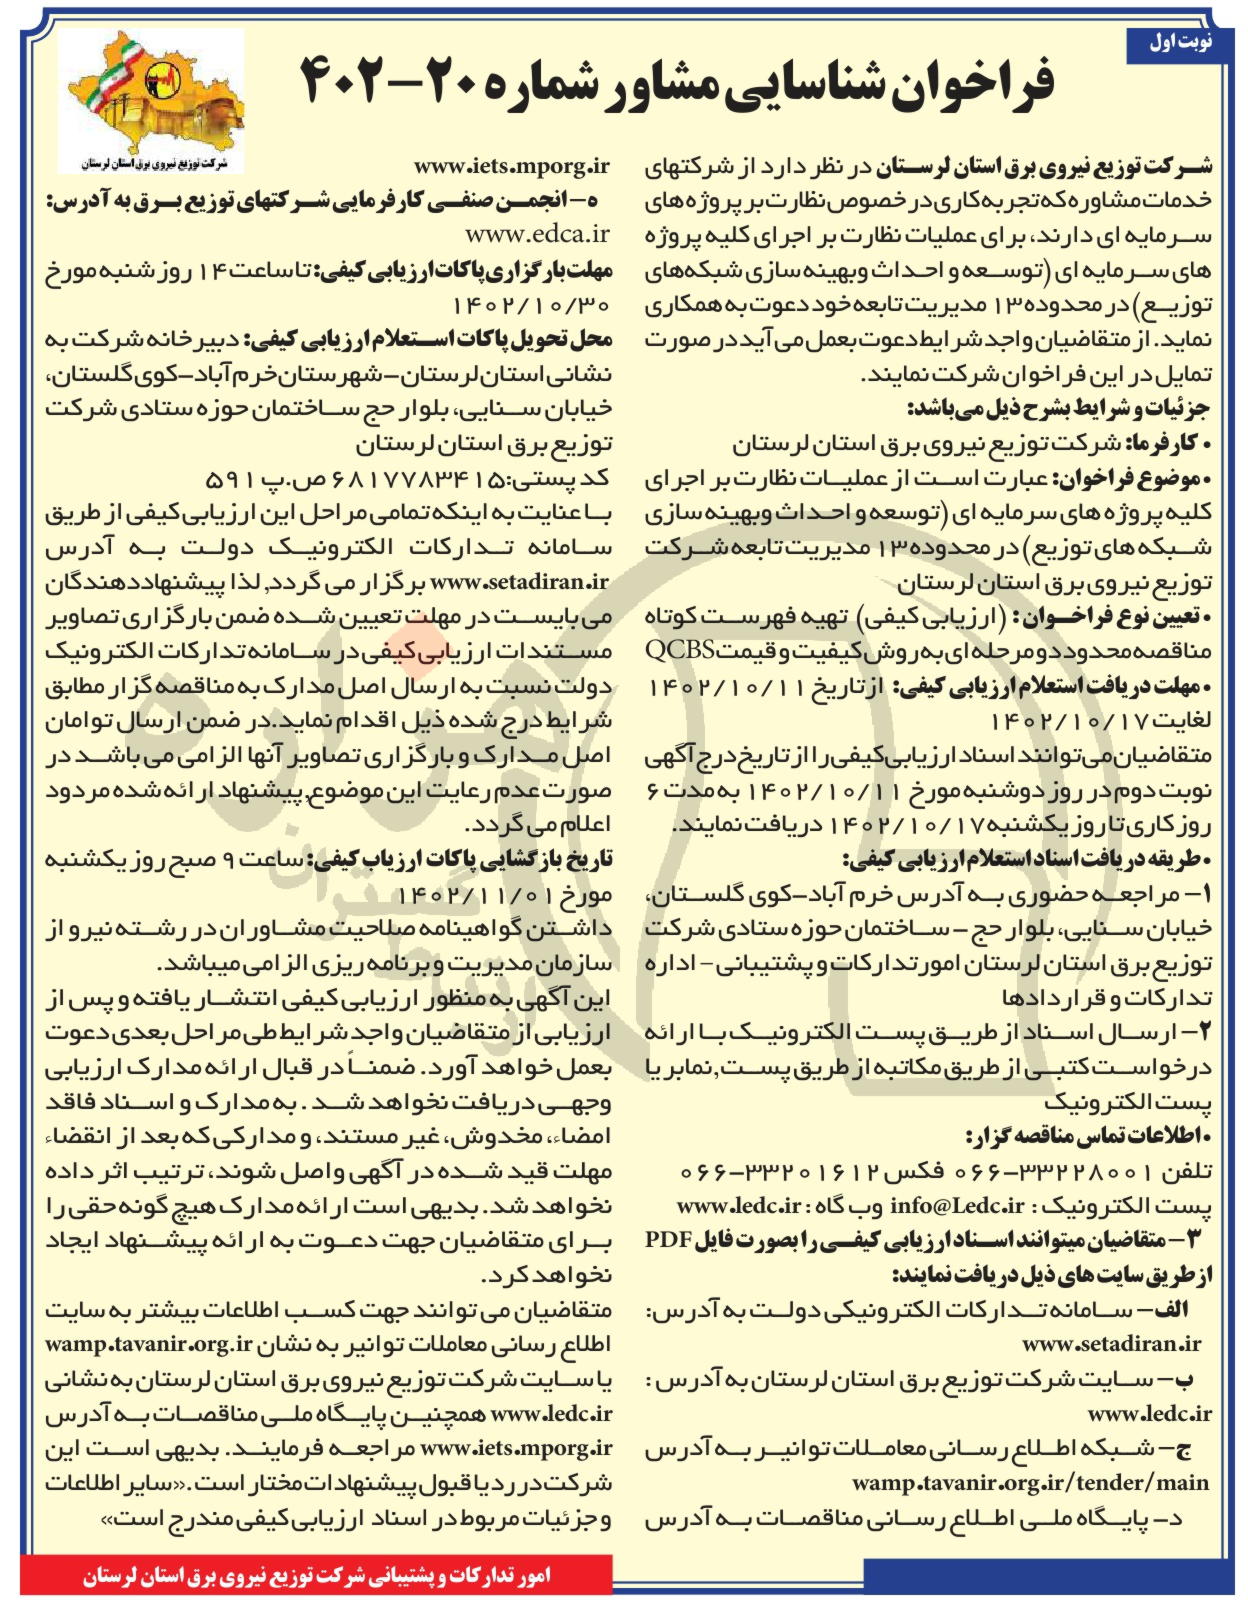 نوبت اول
فراخوان شناسایی مشاور شماره ۲۰-۴۰۲
شرکت توزیع نیروی برق استان لرستان
شرکت توزیع نیروی برق استان لرستان در نظر دارد از شرکتهای
خدمات مشاوره که تجربه کاری در خصوص نظارت بر پروژه های
سرمایه ای دارند، برای عملیات نظارت بر اجرای کلیه پروژه
های سرمایه ای (توسعه و احداث وبهینه سازی شبکه‌های
توزیع) در محدوده ۱۳ مدیریت تابعه خود دعوت به همکاری
نماید. از متقاضیان واجد شرایط دعوت بعمل می آید در صورت
تمایل در این فراخوان شرکت نمایند.
جزئیات و شرایط بشرح ذیل می‌باشد:
• کارفرما: شرکت توزیع نیروی برق استان لرستان
•موضوع فراخوان: عبارت است از عملیات نظارت بر اجرای
کلیه پروژه های سرمایه ای (توسعه و احداث وبهینه سازی
شبکه های توزیع) در محدوده ۱۳ مدیریت تابعه شرکت
توزیع نیروی برق استان لرستان
•تعیین نوع فراخوان : (ارزیابی کیفی) تهیه فهرست کوتاه
مناقصه محدود دو مرحله ای به روش کیفیت و قیمت QCBS
•مهلت دریافت استعلام ارزیابی کیفی: از تاریخ ۱۴۰۲/۱۰/۱۱
لغایت ۱۴۰۲/۱۰/۱۷
متقاضیان می‌توانند اسناد ارزیابی کیفی را از تاریخ درج آگهی
نوبت دوم در روز دوشنبه مورخ ۱۴۰۲/۱۰/۱۱ به مدت ۶
روز کاری تا روز یکشنبه ۱۴۰۲/۱۰/۱۷ دریافت نمایند.
•طریقه دریافت اسناد استعلام ارزیابی کیفی:
۱- مراجعه حضوری به آدرس خرم آباد-کوی گلستان،
خیابان سنایی، بلوار حج - ساختمان حوزه ستادی شرکت
توزیع برق استان لرستان امور تدارکات و پشتیبانی - اداره
تدارکات و قراردادها
۲- ارسال اسناد از طریق پست الکترونیک با ارائه
درخواست کتبی از طریق مکاتبه از طریق پست, نمابر یا
پست الکترونیک
•اطلاعات تماس مناقصه گزار:
تلفن ۳۳۲۲۸۰۰۱-۰۶۶ فکس ۳۳۲۰۱۶۱۲-۰۶۶
پست الکترونیک : info@Ledc.ir وب گاه : www.ledc.ir
۳- متقاضیان میتوانند اسناد ارزیابی کیفی را بصورت فایل PDF
از طریق سایت های ذیل دریافت نمایند:
الف- سامانه تدارکات الکترونیکی دولت به آدرس:
www.setadiran.ir
ب- سایت شرکت توزیع برق استان لرستان به آدرس :
www.ledc.ir
ج- شبکه اطلاع رسانی معاملات توانیر به آدرس
wamp.tavanir.org.ir/tender/main
د- پایگاه ملی اطلاع رسانی مناقصات به آدرس
www.iets.mporg.ir
ه- انجمن صنفی کارفرمایی شرکتهای توزیع برق به آدرس:
www.edca.ir
مهلت بارگزاری پاکات ارزیابی کیفی: تا ساعت ۱۴ روز شنبه مورخ
۱۴۰۲/۱۰/۳۰
محل تحویل پاکات استعلام ارزیابی کیفی: دبیرخانه شرکت به
نشانی استان لرستان-شهرستان خرم آباد-کوی گلستان،
خیابان سنایی، بلوار حج ساختمان حوزه ستادی شرکت
توزیع برق استان لرستان
کد پستی:۶۸۱۷۷۸۳۴۱۵ ص.پ ۵۹۱
با عنایت به اینکه تمامی مراحل این ارزیابی کیفی از طریق
سامانه تدارکات الکترونیک دولت به آدرس
www.setadiran.ir برگزار می گردد, لذا پیشنهاددهندگان
می بایست در مهلت تعیین شده ضمن بارگزاری تصاویر
مستندات ارزیابی کیفی در سامانه تدارکات الکترونیک
دولت نسبت به ارسال اصل مدارک به مناقصه گزار مطابق
شرایط درج شده ذیل اقدام نماید.در ضمن ارسال توامان
اصل مدارک و بارگزاری تصاویر آنها الزامی می باشد در
صورت عدم رعایت این موضوع,پیشنهاد ارائه شده مردود
اعلام می گردد.
تاریخ بازگشایی پاکات ارزیاب کیفی: ساعت ۹ صبح روز یکشنبه
مورخ ۱۴۰۲/۱۱/۰۱
داشتن گواهینامه صلاحیت مشاوران در رشته نیرو از
سازمان مدیریت و برنامه ریزی الزامی میباشد.
این آگهی به منظور ارزیابی کیفی انتشار یافته و پس از
ارزیابی از متقاضیان واجد شرایط طی مراحل بعدی دعوت
بعمل خواهد آورد. ضمناً در قبال ارائه مدارک ارزیابی
وجهی دریافت نخواهد شد . به مدارک و اسناد فاقد
امضاء، مخدوش، غیر مستند، و مدارکی که بعد از انقضاء
مهلت قید شده در آگهی واصل شوند، ترتیب اثر داده
نخواهد شد. بدیهی است ارائه مدارک هیچ گونه حقی را
برای متقاضیان جهت دعوت به ارائه پیشنهاد ایجاد
نخواهد کرد.
متقاضیان می توانند جهت کسب اطلاعات بیشتر به سایت
اطلاع رسانی معاملات توانیر به نشان wamp.tavanir.org.ir
یا سایت شرکت توزیع نیروی برق استان لرستان به نشانی
www.ledc.ir همچنین پایگاه ملی مناقصات به آدرس
www.iets.mporg.ir مراجعه فرمایند. بدیهی است این
شرکت در رد یا قبول پیشنهادات مختار است.«سایر اطلاعات
و جزئیات مربوط در اسناد ارزیابی کیفی مندرج است»
امور تدارکات و پشتیبانی شرکت توزیع نیروی برق استان لرستان
هزاره